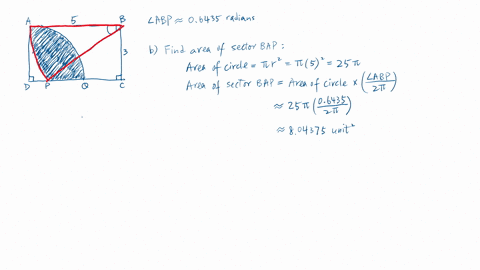 A 5 B
3
D P Q C
∠ABP ≈ 0.6435 radians
b) Find area of sector BAP :
Area of circle = πr² = π(5)² = 25π
Area of sector BAP = Area of circle × (∠ABP / 2π)
≈ 25π (0.6435 / 2π)
≈ 8.04375 unit²